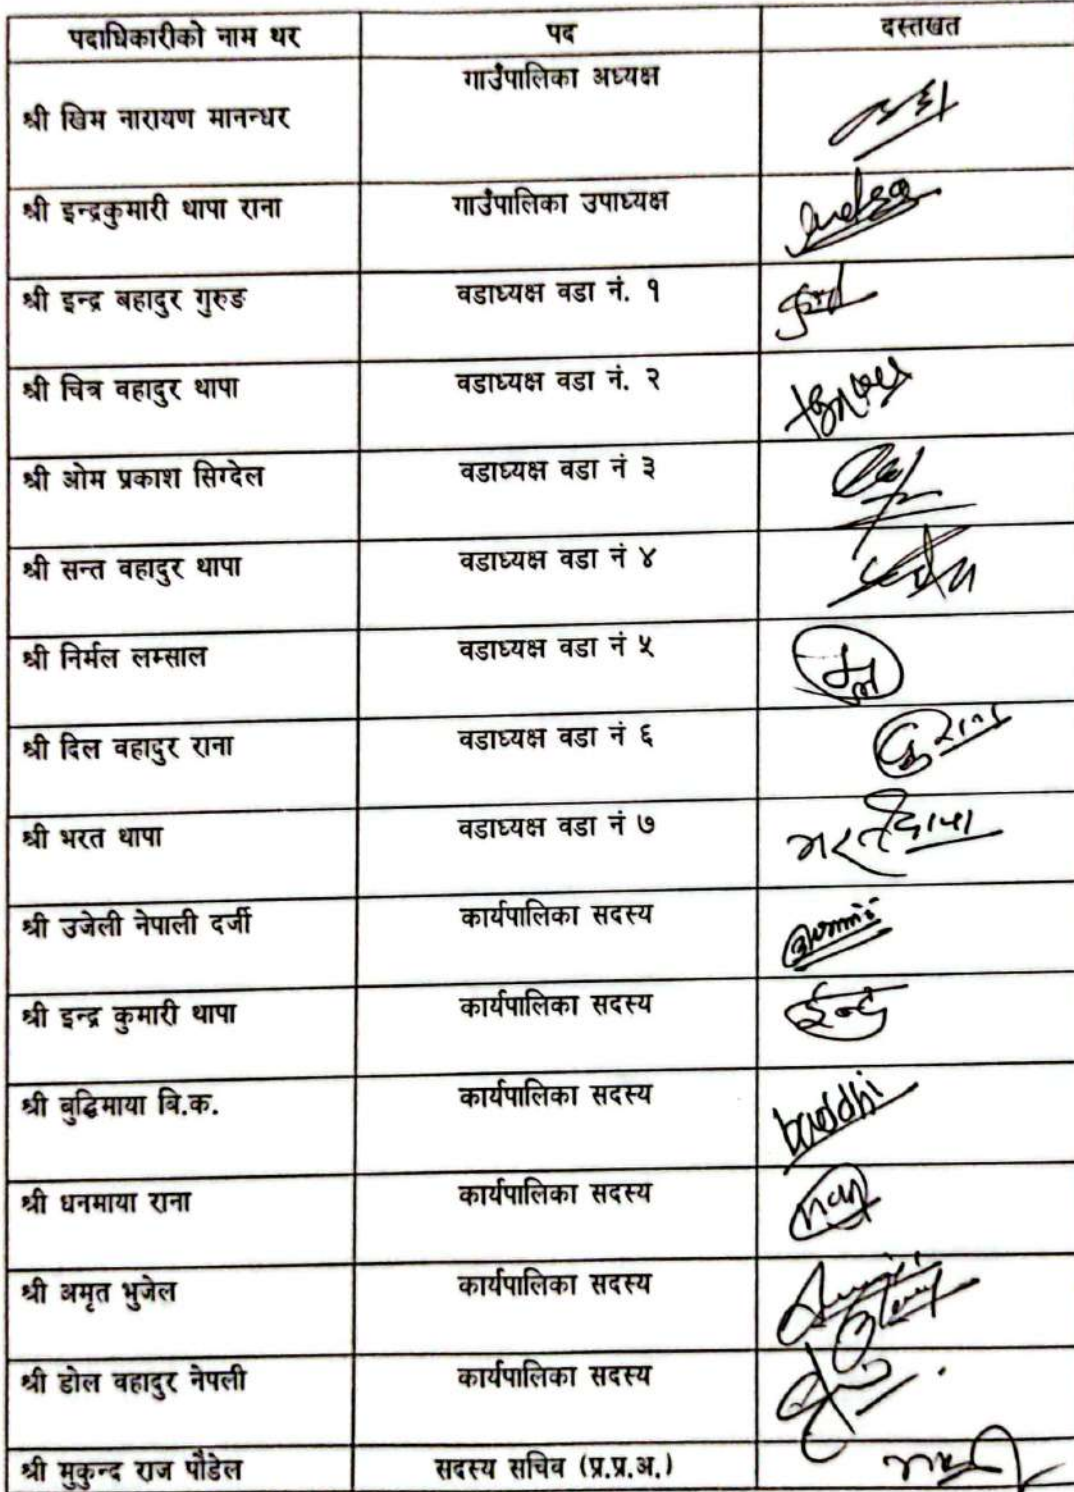 पदाधिकारीको नाम थर पद दस्तखत
श्री खिम नारायण मानन्धर गाउँपालिका अध्यक्ष
श्री इन्द्रकुमारी थापा राना गाउँपालिका उपाध्यक्ष
श्री इन्द्र बहादुर गुरुङ वडाध्यक्ष वडा नं. १
श्री चित्र वहादुर थापा वडाध्यक्ष वडा नं. २
श्री ओम प्रकाश सिग्देल वडाध्यक्ष वडा नं ३
श्री सन्त वहादुर थापा वडाध्यक्ष वडा नं ४
श्री निर्मल लम्साल वडाध्यक्ष वडा नं ५
श्री दिल वहादुर राना वडाध्यक्ष वडा नं ६
श्री भरत थापा वडाध्यक्ष वडा नं ७ भरत थापा
श्री उजेली नेपाली दर्जी कार्यपालिका सदस्य
श्री इन्द्र कुमारी थापा कार्यपालिका सदस्य ईन्द्र
श्री बुद्धिमाया बि.क. कार्यपालिका सदस्य buddhi
श्री धनमाया राना कार्यपालिका सदस्य
श्री अमृत भुजेल कार्यपालिका सदस्य
श्री डोल वहादुर नेपली कार्यपालिका सदस्य
श्री मुकुन्द राज पौडेल सदस्य सचिव (प्र.प्र.अ.)